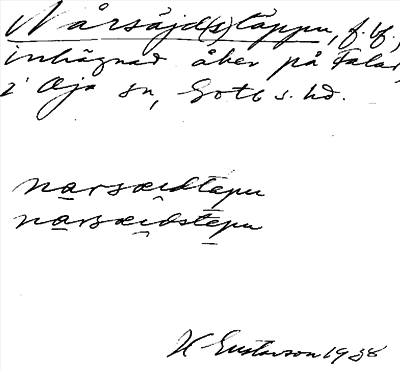 Nårsäjd(s)täppu, f. bf.,
inhägnad åker på Falar,
i Öja sn, Gotl s. hd.
narsæidtepu
narsæidstepu
H Gustavson 1938